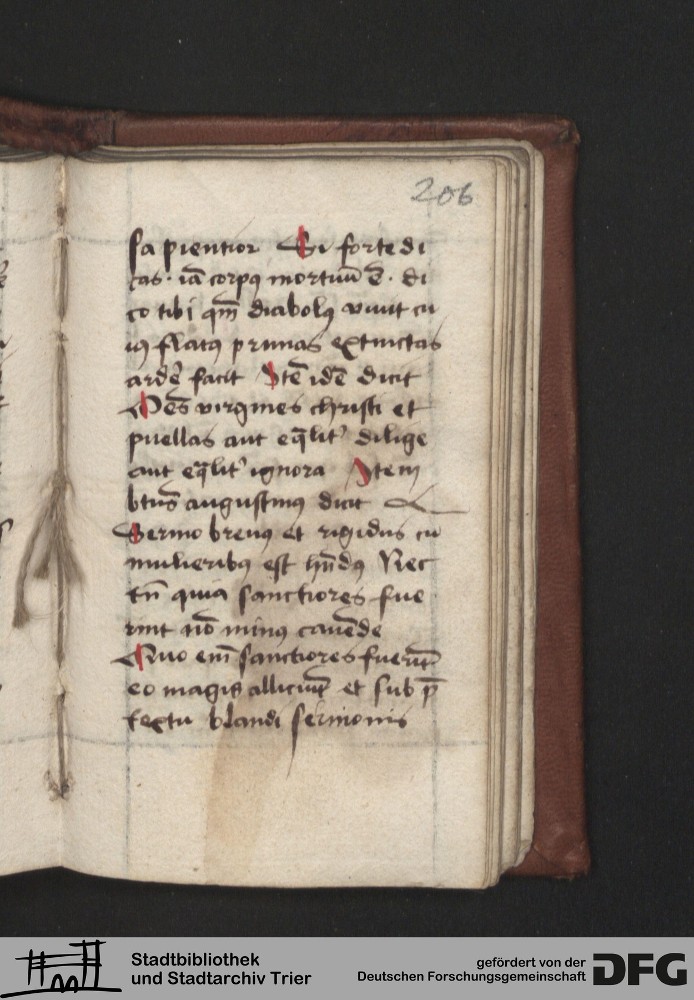 206
sapientior Si forte di
cas · iā corpꝰ mortuū ē · di
co tibi qm̄ diabolꝰ viuit cu
iꝰ flatꝰ prunas extinctas
ardē facit Itē idē dicit
Oēs virgines christi et
puellas aut eq̄lit' dilige
aut eq̄lit' ignora Item
btūs augustinꝰ dicit
Sermo breuis et rigidus cū
mulieribꝰ est hn̄dꝰ Nec
tn̄ quia sanctiores fue
rint nō minꝰ cauēde
Quo em̄ sanctiores fuerūt
eo magis alliciūt et sub p̄
textu blandi sermonis
Stadtbibliothek
und Stadtarchiv Trier
gefördert von der
Deutschen Forschungsgemeinschaft
DFG